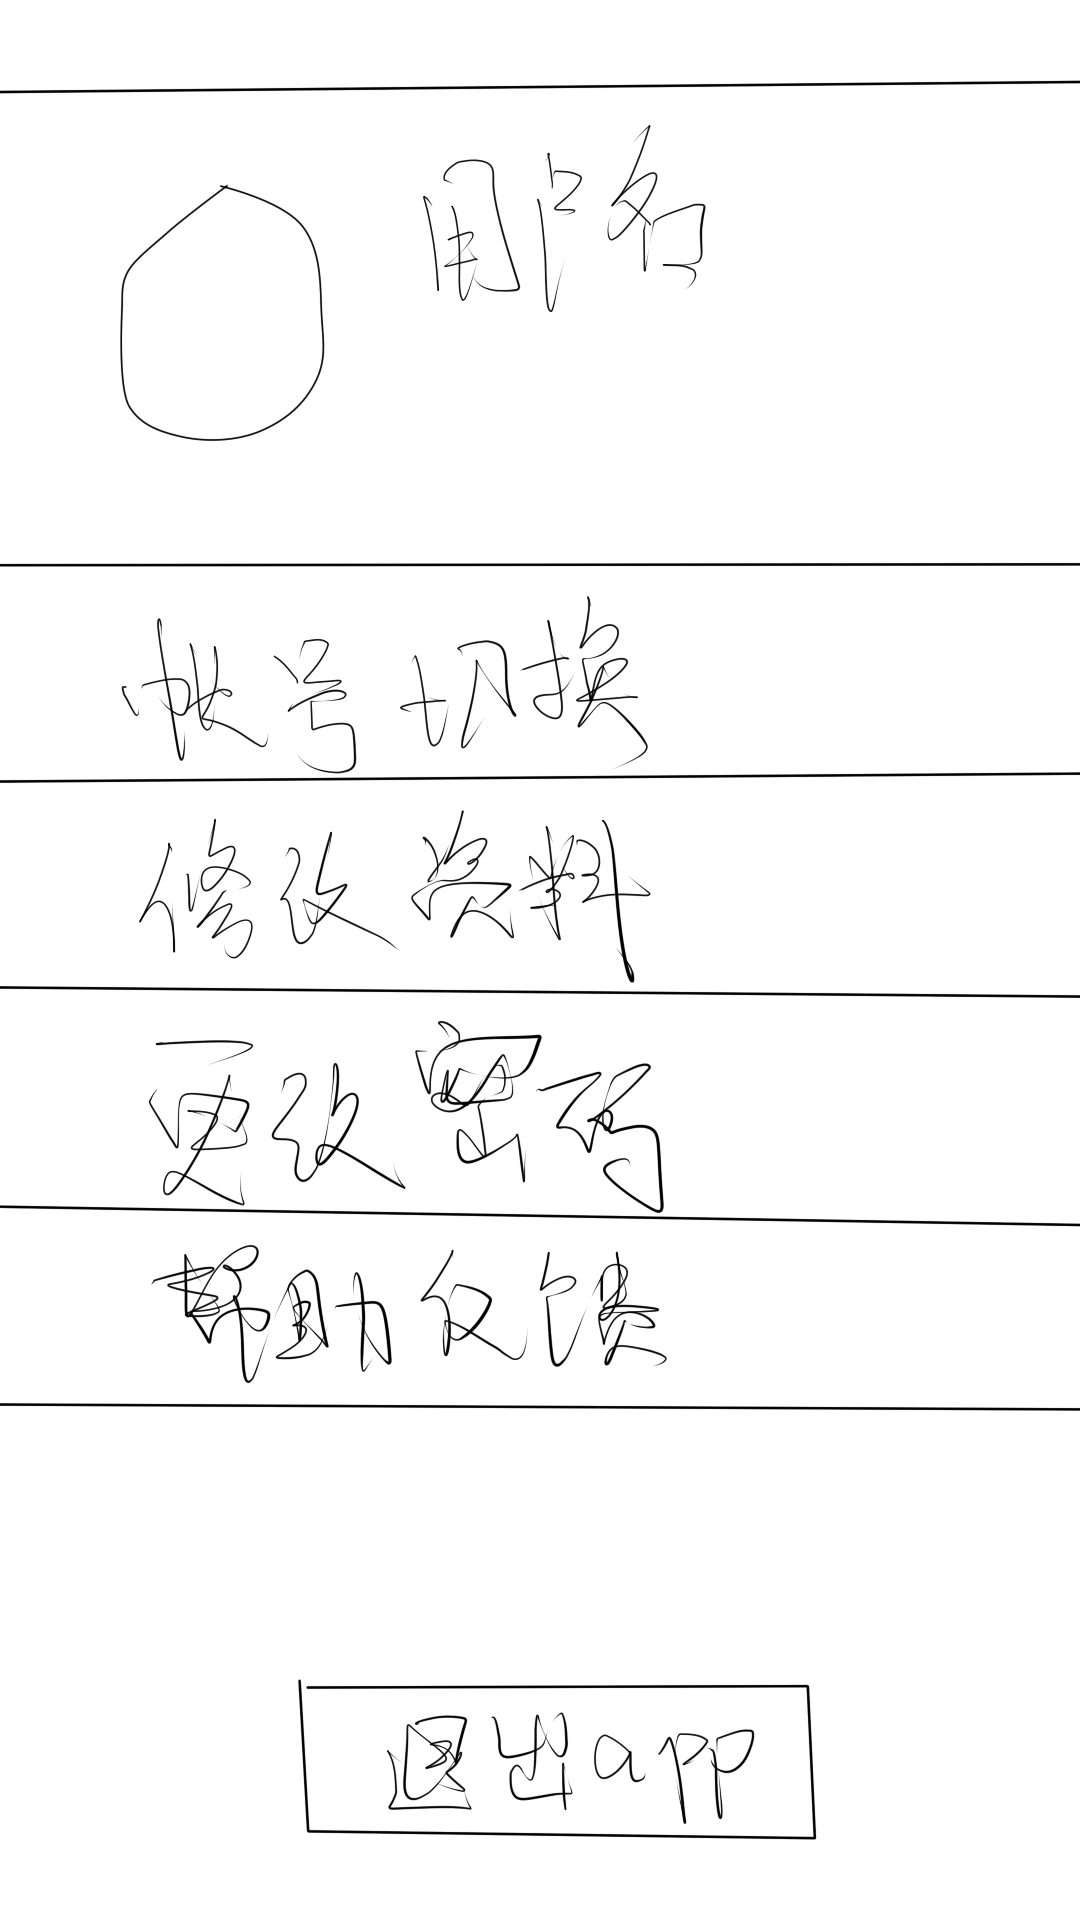 用户名
帐号切换
修改资料
更改密码
帮助反馈
退出app